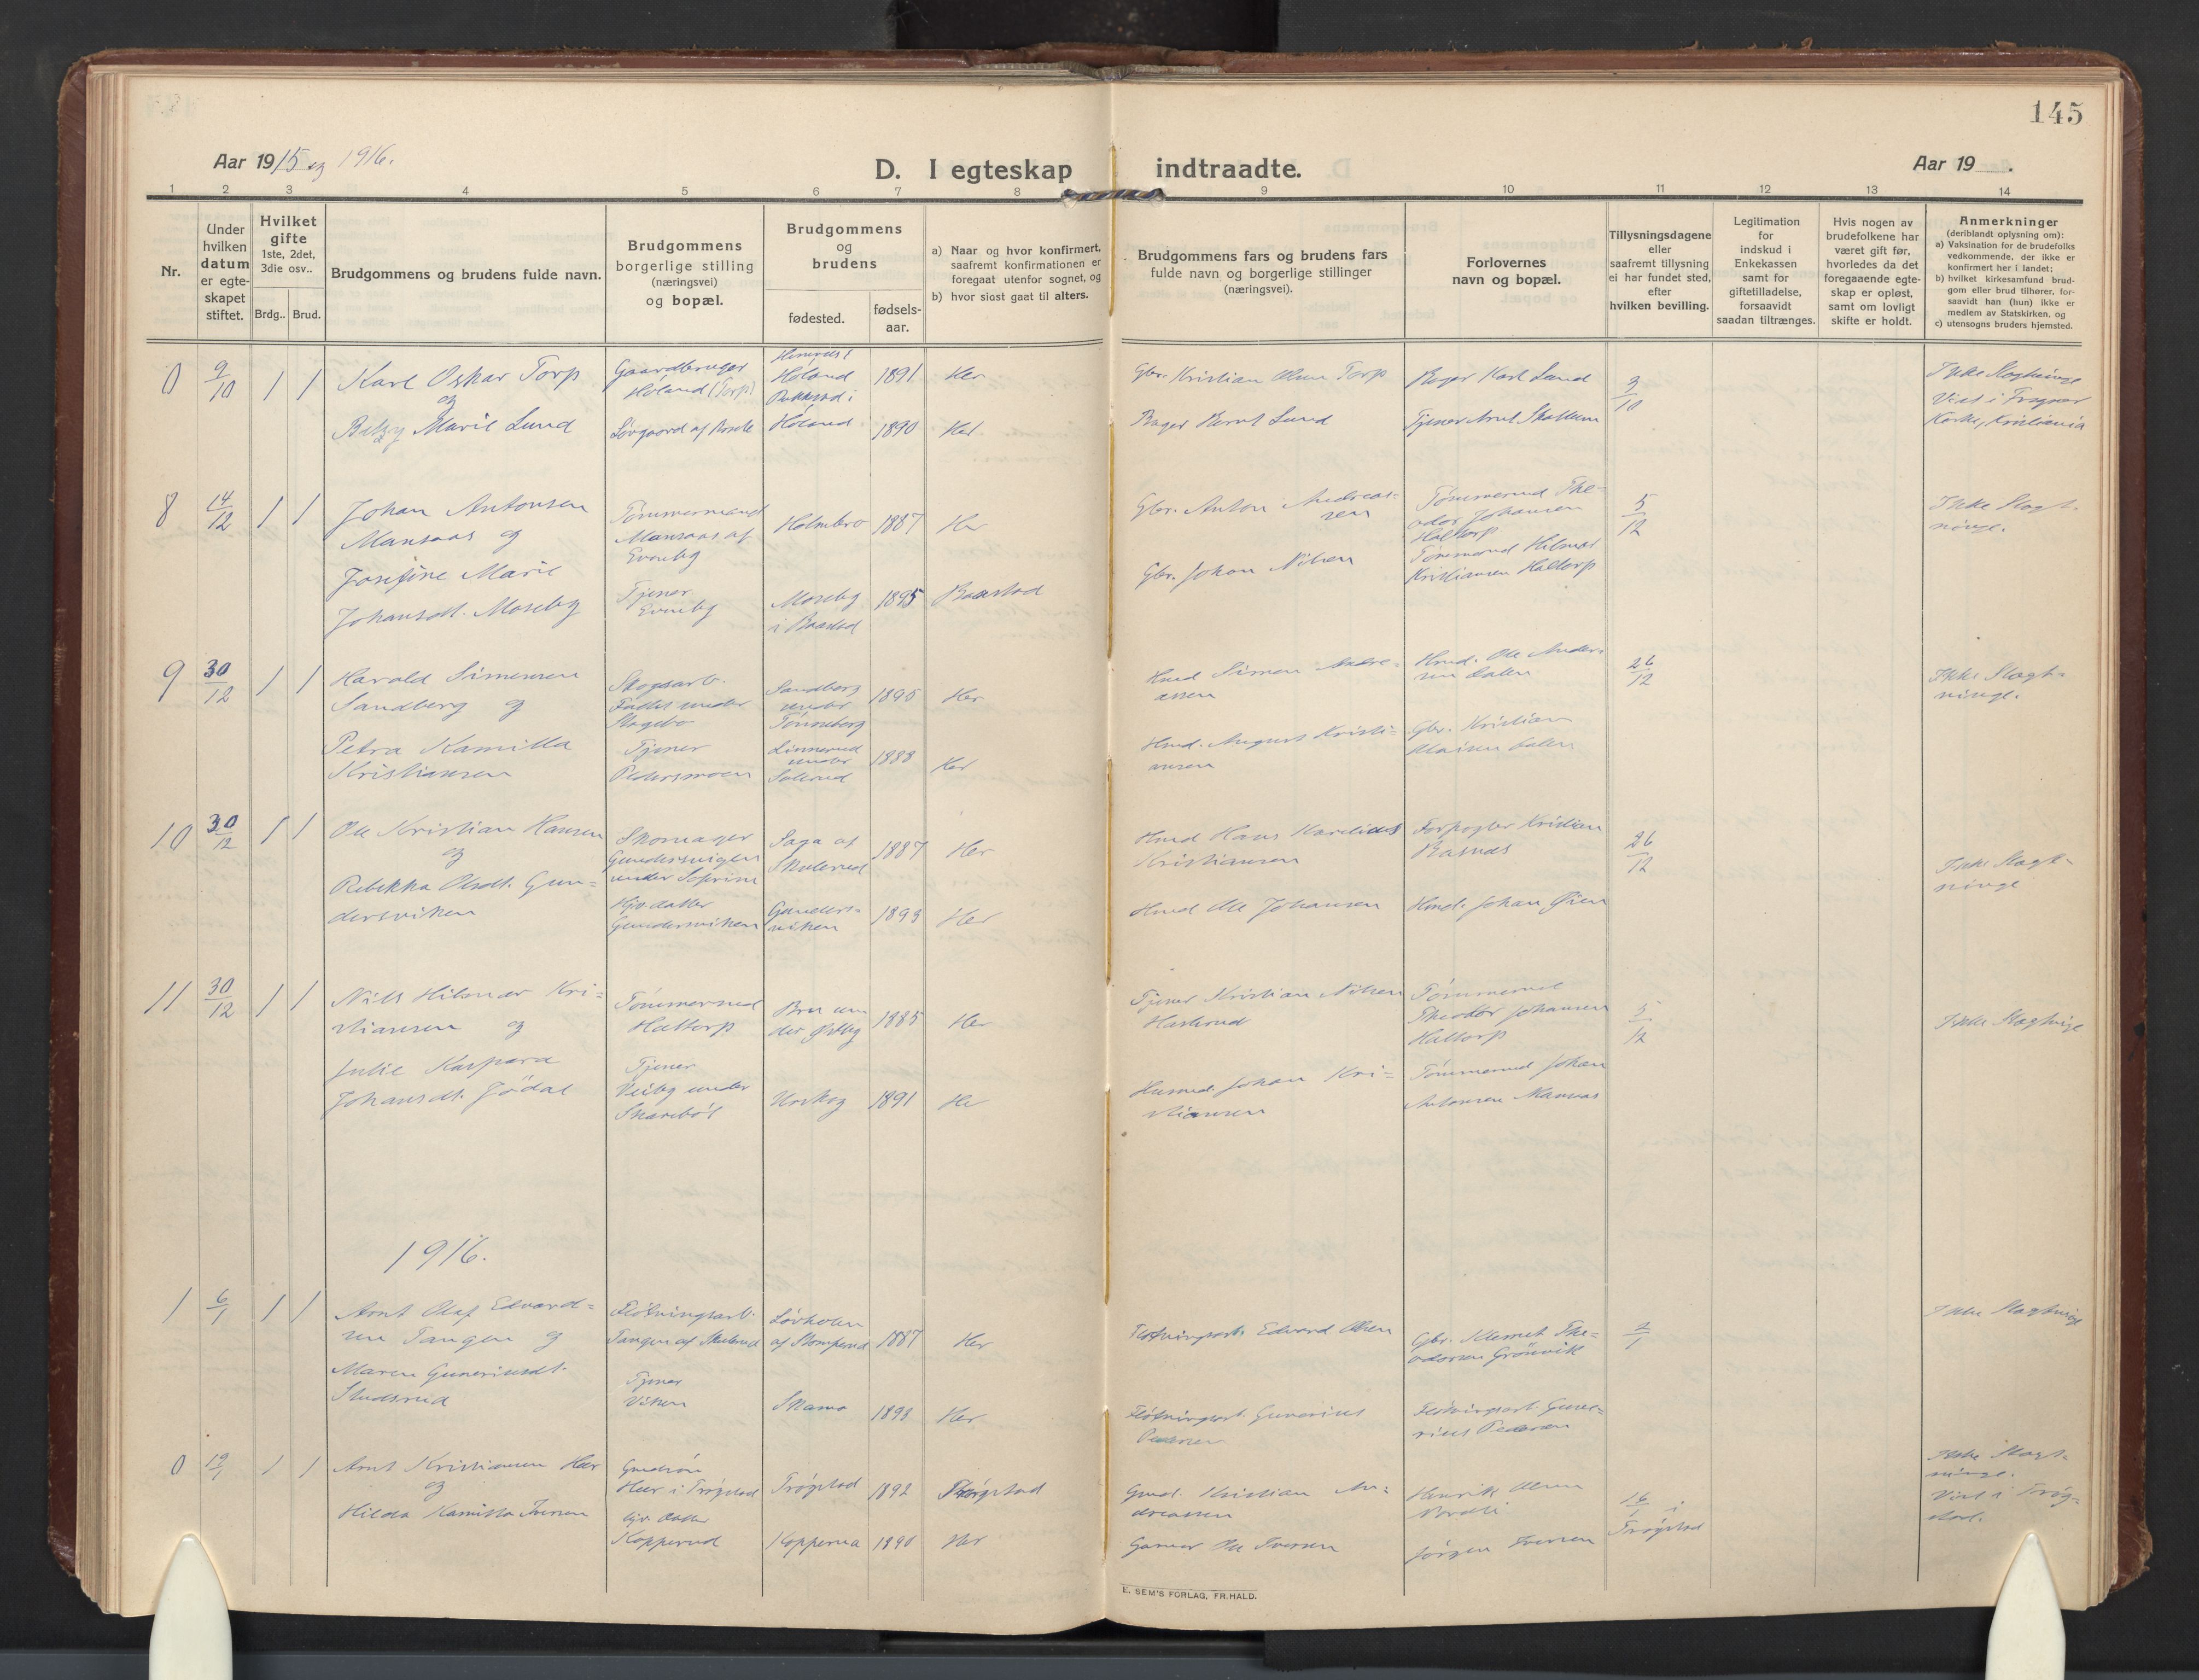 145
Aar 1915 og 1916.
D. I egteskap indtraadte.
Aar 19 .
1 2 3 4 5 6 7 8 9 10 11 12 13 14
Nr.
Under
hvilken
datum
er egte-
skapet
stiftet.
Hvilket
gifte
1ste, 2det,
3die osv..
Brdg.. Brud.
Brudgommens og brudens fulde navn.
Brudgommens
borgerlige stilling
(næringsvei)
og bopæl.
Brudgommens
og
brudens
fødested.
fødsels-
aar.
a) Naar og hvor konfirmert,
saafremt konfirmationen er
foregaat utenfor sognet, og
b) hvor sidst gaat til alters.
Brudgommens fars og brudens fars
fulde navn og borgerlige stillinger
(næringsvei).
Forlovernes
navn og bopæl.
Tillysningsdagene
eller
saafremt tillysning
ei har fundet sted,
efter
hvilken bevilling.
Legitimation
for
indskud i
Enkekassen
samt for
giftetilladelse,
forsaavidt
saadan tiltrænges.
Hvis nogen av
brudefolkene har
været gift før,
hvorledes da det
foregaaende egte-
skap er opløst,
samt om lovligt
skifte er holdt.
Anmerkninger
(deriblandt oplysning om):
a) Vaksination for de brudefolks
vedkommende, der ikke er
konfirmert her i landet;
b) hvilket kirkesamfund brud-
gom eller brud tilhører, for-
saavidt han (hun) ikke er
medlem av Statskirken, og
c) utensogns bruders hjemsted.
0 9/10 1 1
Karl Oskar Torp
og
Betzy Marie Lund
Gaardbruger
Høland (Torp)
Løvgaard af
Høland
i
Høland
1891
1890
Her
Her
Gbr. Kristian Olsen Torp
Bager Bernt Lund
Bager Karl Lund
Tjener Arnt Skallum
3/10
Ikke Slegtninge
Viet i Frogner
Kirke, Kristiania
8 14/12 1 1
Johan Antonsen
Mansaas og
Josefine Marie
Johansdt. Moseby
Tømmermand
Mansaas af
Evenby
Tjener
Evenby
Holmbro
Moseby
i Baastad
1887
1895
Her
Baastad
Gbr. Anton Andreas-
sen
Gbr. Johan Nilsen
Tømmermd The-
odor Johansen
Haltorp
Tømmermd Hilmar
Kristiansen Haltorp
5/12
Ikke Slegt-
ninge.
9 30/12 1 1
Harald Simensen
Sandberg og
Petra Kamilla
Kristiansen
Skogsarb.
under
Tjener
Pedersmoen
Sandberg
under
Tønneberg
under
1890
1888
Her
Her
Hmd Simen Andre-
assen
Hmd. August Kristi-
ansen
Hmd. Ole Ander-
sen Dalen
Gbr. Kristian
Dalen
26/12
Ikke Slegt-
ninge.
10 30/12 1 1
Ole Kristian Hansen
og
Rebekka Olsdt. Gun-
dersviken
Skomager
Gundersvigen
under Sofrim
Hjv. datter
Gundersviken
Saga af
Skulerud
Gunders-
viken
1887
1893
Her
Her
Hmd Hans Karelius
Kristiansen
Hmd Ole Johansen
Forpagter Kristian
Hmd. Johan Øien
26/12
Ikke Slegt-
ninge
11 30/12 1 1
Nils Hilmar Kri-
stiansen og
Julie Kaspara
Johansdt. Jødal
Tømmermd
Haltorp
Tjener
Veiby under
Skarebøl
Bru un-
der Østby
Urskog
1885
1891
Her
Her
Tjener Kristian Nilsen
Husmd. Johan Kri-
stiansen
Tømmermd
Theodor Johansen
Haltorp
Tømmermd Johan
Antonsen Mansaas
5/12
Ikke Slegtninge
1916.
1 6/1 1 1
Arnt Olaf Edvard-
sen Tangen og
Maren Guneriusdt.
Studsrud
Fløtningsarb.
Tangen af Skulerud
Tjener
Viken
Løvholen
af Stomperud
Skamo
1887
1893
Her
Her
Fløtningsarb. Edvard Olsen
Fløtningsarb. Gunerius
Pedersen
Gbr. Klemet The-
odorsen Grønvik
Fløtningsarb. Gune-
rius Pedersen
2/1
Ikke Slegtninge
0 19/1 1 1
Arnt Kristiansen Hær
og
Hilda Kamilla Iversen
Gaardsøn
Hær i Trøgstad
Hjv. datter
Kopperud
Trøgstad
Kopperud
1892
1890
Trøgstad
Her
Gmd. Kristian An-
dreassen
Garver Ole Iversen
Henrik Olsen
Jørgen Iversen
16/1 i
Trøgstad
Ikke Slegt-
ninge.
Viet i Trøg-
stad.
E. SEM'S FORLAG, FR.HALD.